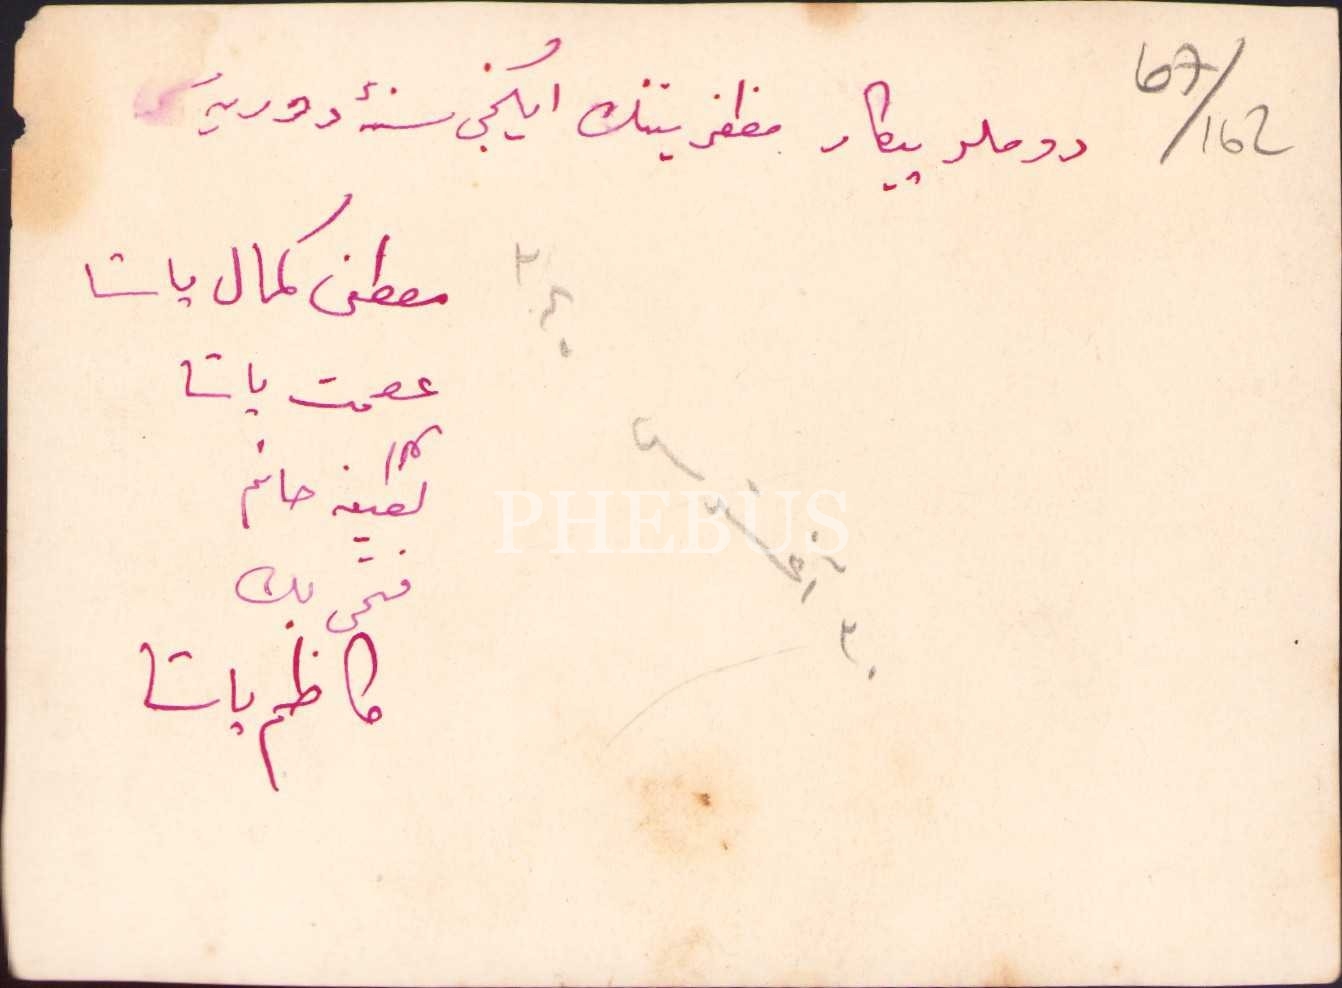 67/162
دوملو پیكار مظفریتنك ایكنجی سنهٔ دوریه
مصطفی كمال پاشا
عصمت پاشا
لطیفه خانم
فتحی بك
كاظم پاشا
٢٤٠
٢٠
PHEBUS